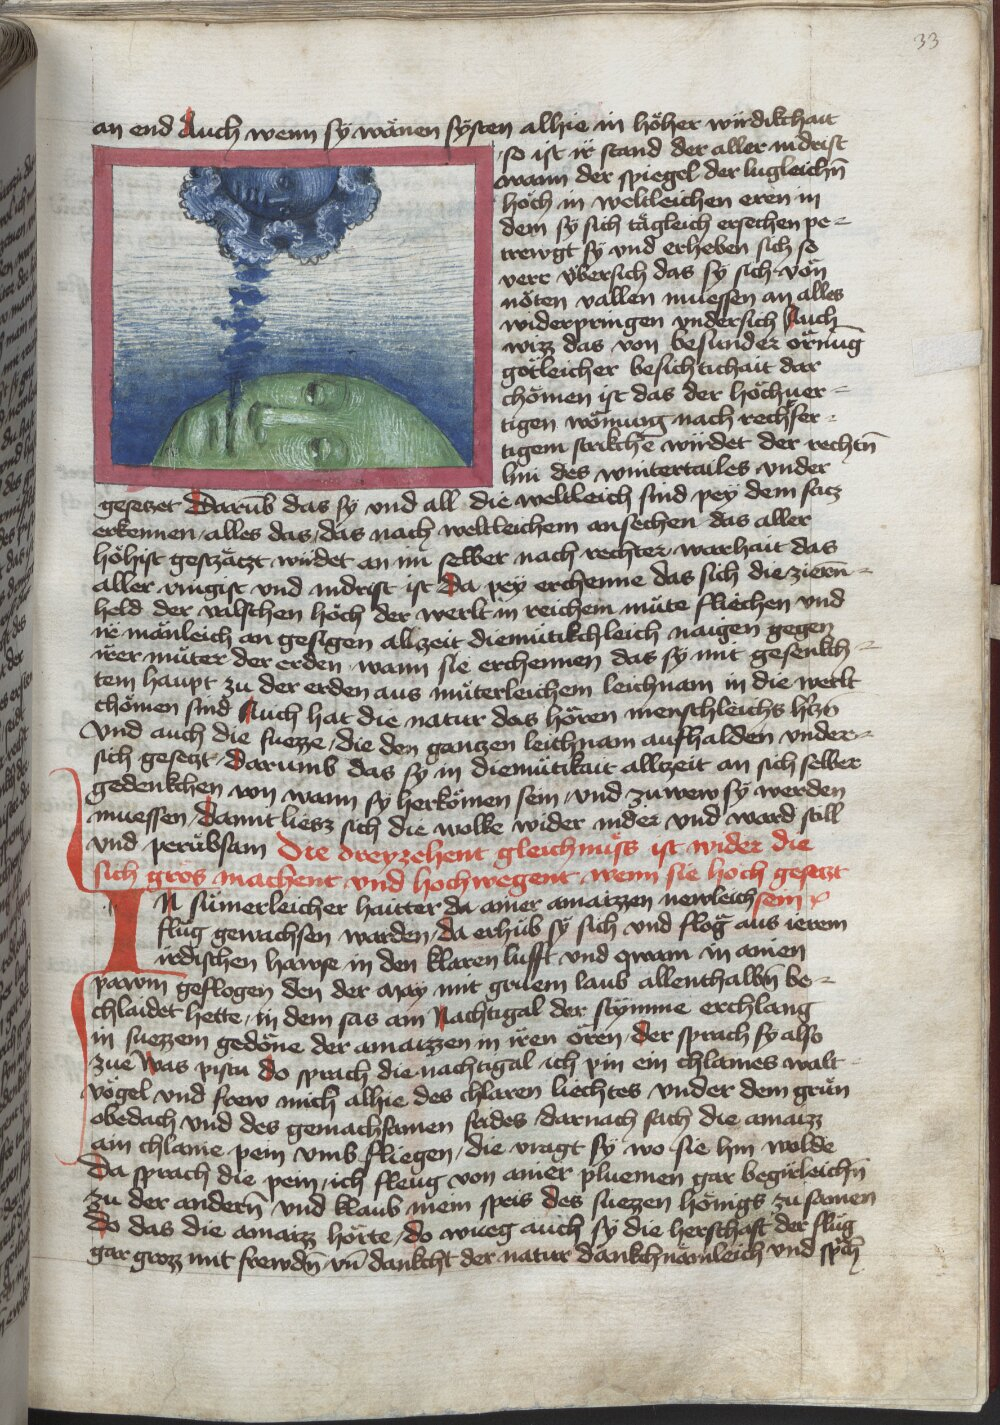 33
an end Auch wenn sÿ wänen sÿ sten alhie in höher wirdikchait
so ist ir stand der aller nidrist
wann der spiegel der lugleichn̄
höch in weltleichen eren in
dem sÿ sich tägleich ersechen pe-
trewgt sÿ und erheben sich so
verr übersich das sÿ sich von
nöten vallen muessen an alles
widerpringen undersich Auch
wizz das von besunder ornūg
götleicher besichtichait dar
chömen ist das der höchuer-
tigen wonung nach rechtfer-
tigem strikchē wirdet der rechtn̄
hin des wintertailes under
gesetzet Darūb das sÿ und all die weltleich sind peÿ dem satz
erkennen alles das das nach weltleichem ansechen das aller
höhist geschätzt wirdet an im selber nach rechter warhait das
aller ringist und nidrist ist Da peÿ erchenne das sich die ziern-
held der valschen höch der werlt in reichem müte fliechen und
ir mänleich an gesigen allzeit diemütikchleich naigen gegen
irer müter der erden wann sie erchennen das sÿ mit gesenkch-
tem haupt zu der erden aus müterleichem leichnam in die werlt
chömen sind Auch hat die natur das hören menschleichs
und auch die fuezze die den gantzen leichnam aufhalden under-
sich gesetzt Darumb das sÿ in diemütikait allzeit an sich selber
gedenkchen von wann sÿ herkömen sein und zu wew sÿ werden
muessen Damit liesz sich die wolke wider nider und ward still
und perübsam Die dreyzehent gleichnüss ist wider die
sich gros machent und hochwegent wenn sie hoch gesetzt
IN sumerleicher haitter da ainer amaizzen newleich sein
flüg gewachsen warden da erhüb sÿ sich und flog aus ierem
irdischen hawse in den klaren lufft und qwam in ainen
pawm geflogen den der may mit gruem laub allenthalbn̄ be-
chlaidet hette in dem sas ain Nachtigal der stymme erchlang
in suezzem gedöne der amaizzen in iren ören der sprach sÿ also
zue Was pistu do sprach die nachtigal ich pin ein chlaines walt-
vögel und frew mich alhie des chlaren liechtes under dem grün
obedach und des gemachsamen sedes darnach sach die amaizz
ain chlaine pein umb fliegen die vragt sÿ wo sie hin wolde
Da sprach die pein ich fleug von ainer pluemen gar begirleichn̄
zu der andern̄ und klaub mein speis des suezzen hönigs zu samen
do das die amaizz hörte do wueg auch sÿ die herschaft der flüg
gar grozz mit frewdn̄ un̄ dankcht der natur dankchnämleich und sprach